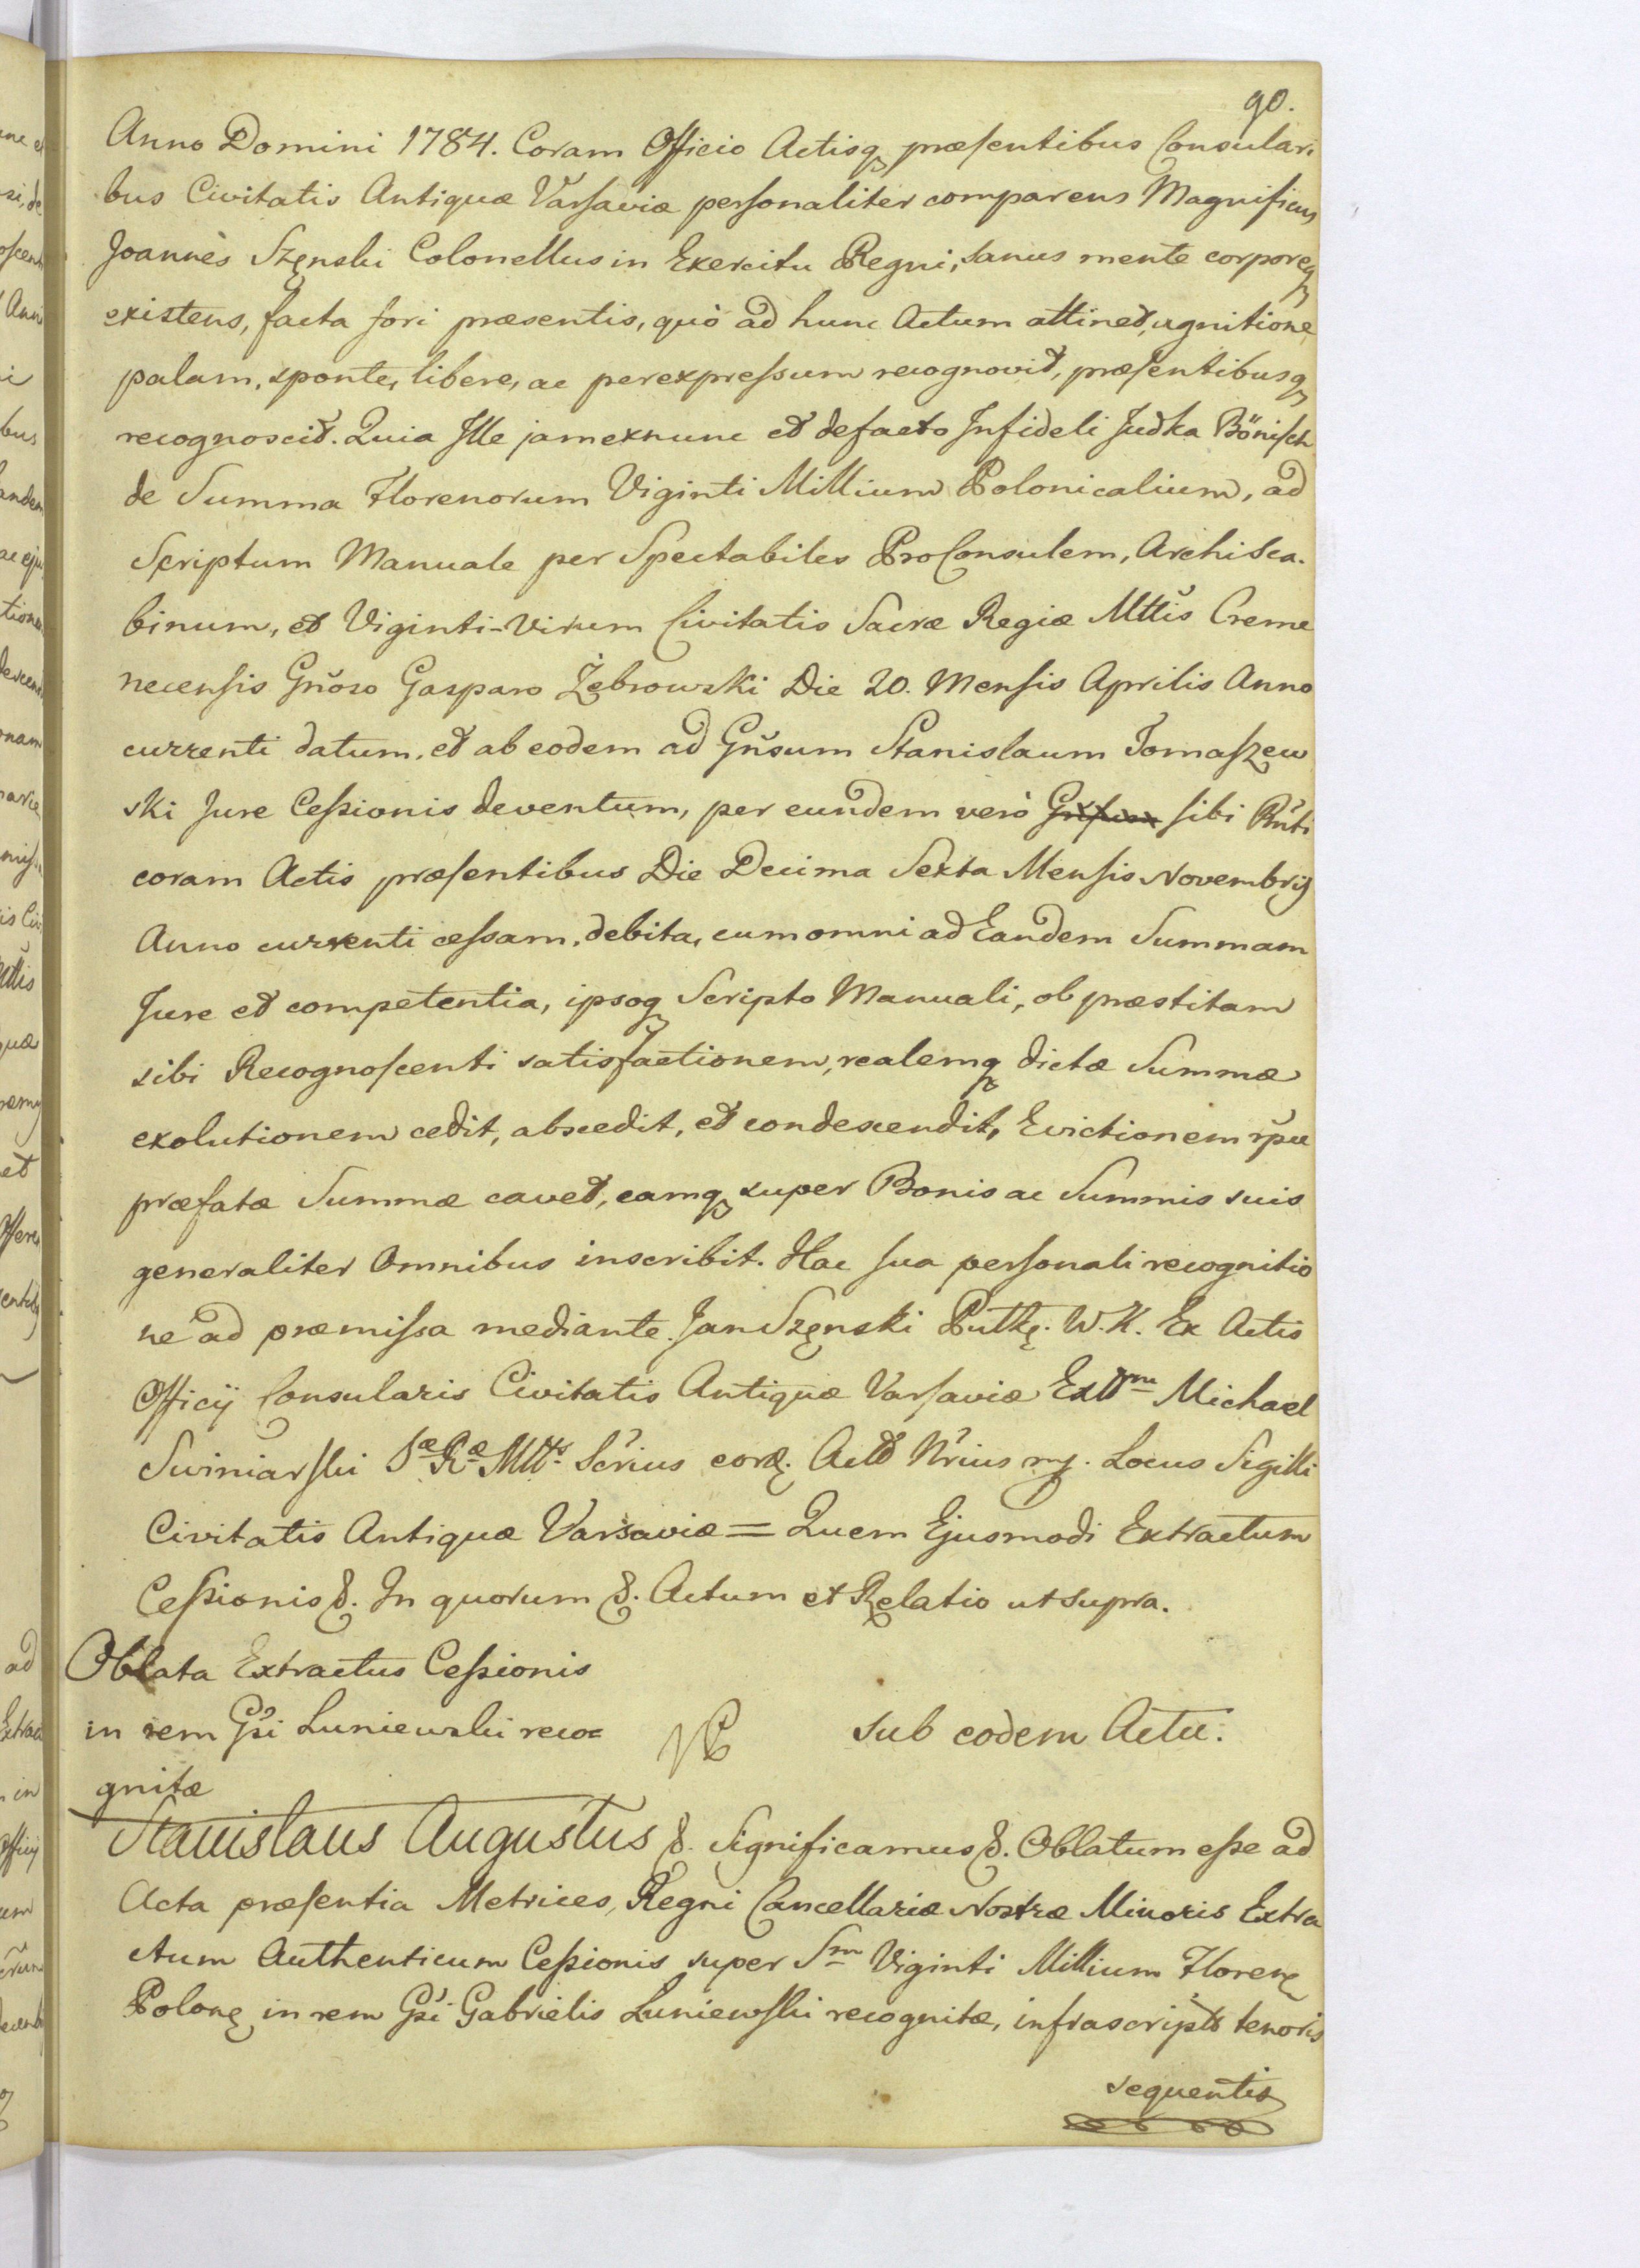 90.
Anno Domini 1784. Coram Officio Actisq præsentibus Consulari
bus Civitatis Antiquæ Varsaviæ personaliter comparens Magnificus
Joannès Szęnski Colonellus in Exercitu Regni, sanus mente corporeq
existens, facta fori præsentis, quò ad hunc Actum attinet, agnitione
palam, sponte, libere, ac per expressum recognovit, præsentibusq
recognoscit. Quia Ille jam exnunc et defacto Infideli Judka Bönisch
de Summa Florenorum Viginti Millium Polonicalium, ad
Scriptum Manuale per Spectabiles ProConsulem, Archisca-
binum, et Viginti-Virum Civitatis Sacræ Regiæ Mttis Creme
necensis Gnoso Gasparo Żebrowski Die 20. Mensis Aprilis Anno
currenti datum, et ab eodem ad Gnsum Stanislaum Tomaszew
ski Jure Cessionis deventum, per eundem verò sibi Rnti
coram Actis præsentibus Die Decima Sexta Mensis Novembris
Anno currenti cessam, debita, cum omni ad Eandem Summam
Jure et competentia, ipsoq Scripto Manuali, ob præstitam
sibi Recognoscenti satisfactionem, realemq dictæ Summæ
exolutionem cedit, abscedit, et condescendit, Evictionem rpu
præfatæ Summæ cavet, eamq super Bonis ac Summis suis
generaliter Omnibus inscribit. Hac sua personali recognitio
ne ad præmissa mediante. Jan Szęnski Putkę. W. K. Ex Actis
Officij Consularis Civitatis Antiquæ Varsaviæ Extm Michael
Swiniarski Sæ Ræ Mtts Scrius cord. Actt Nrius mp. Locus Sigilli
Civitatis Antiquæ Varsaviæ = Quem Ejusmodi Extractum
Cessionis &. In quorum &. Actum et Relatio ut supra.
Oblata Extractus Cessionis
in rem Gsi Luniewski reco=
gnitæ
sub eodem Actu.
Stanislaus Augustus &. Significamus &. Oblatum esse ad
Acta præsentia Metrices, Regni Cancellariæ Nostræ Minoris Extra
ctum Authenticum Cessionis super Sm Viginti Millium Florenę
Polonę in rem Gsi Gabrielis Luniewski recognitæ, infrascripti tenoris
sequentis